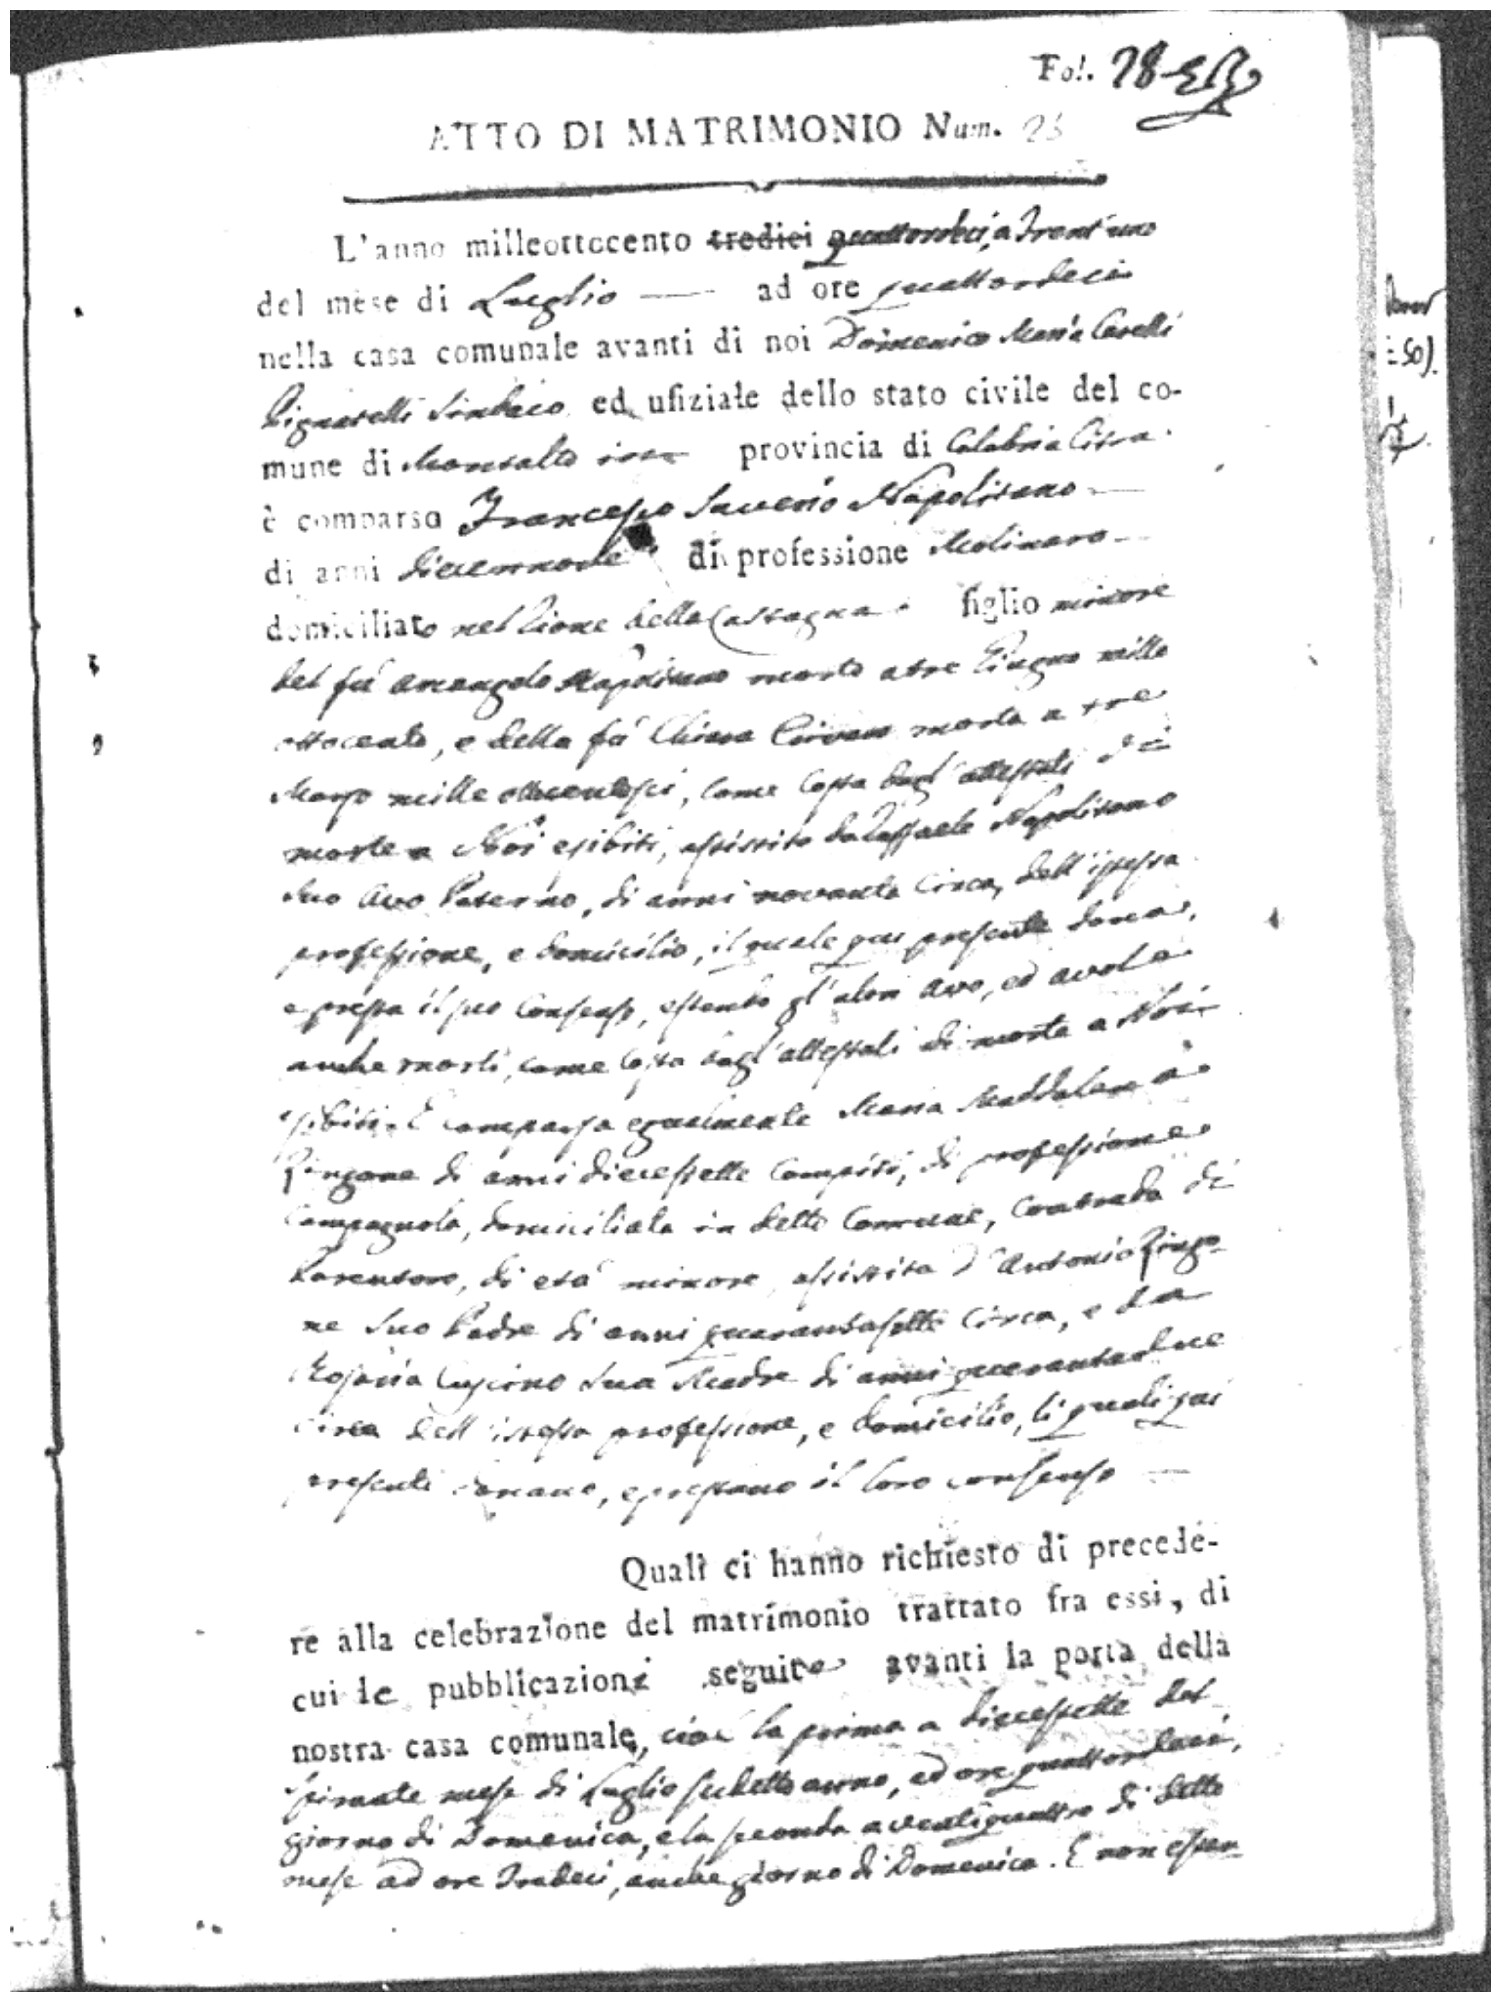 Fol. 28
ATTO DI MATRIMONIO Num. 23
L'anno milleottocento tredici quattordeci, a Trent'uno
del mese di Luglio — ad ore quattordeci
nella casa comunale avanti di noi Domenico Maria Caselli
Pignatelli Sindaco ed ufiziale dello stato civile del co-
mune di Montalto provincia di Calabria Citra
è comparso Francesco Saverio Napolitano —
di anni diecennove di professione Molinaro —
domiciliato nel Rione della Castagna figlio minore
del fù Arcangelo Napolitano morto a tre Giugno mille
ottocento, e della fù Chiara morta a tre
Marzo mille ottocentosei, come costa dagl'attestati di
morte a Noi esibiti, assistito da Raffaele Napolitano
suo Avo Paterno, di anni novanta circa, dell'istessa
professione, e domicilio, il quale qui presente dona,
e presta il suo consenso, essendo gl'altri Avo, ed Avole
anche morti, come costa dagl'attestati di morte a Noi
esibiti. È comparsa egualmente Maria Maddalena
Zingone di anni diecessette compiti, di professione
Campagnola, domiciliata in detto Comune, Contrada di
Parentoro, di età minore, assistita d'Antonio Zingo-
ne suo Padre di anni quarantasette circa, e da
Rosaria Cuscino sua Madre di anni quarantadue
circa dell'istessa professione, e domicilio, li quali qui
presenti donano, e prestano il loro consenso —
Quali ci hanno richiesto di precede-
re alla celebrazione del matrimonio trattato fra essi, di
cui le pubblicazioni seguite avanti la porta della
nostra casa comunale, cioè la prima a diecessette del
spirante mese di Luglio sudetto anno, ad ore quattordeci,
giorno di Domenica, e la seconda a ventiquattro di detto
mese ad ore Tredeci, anche giorno di Domenica. E non essen-